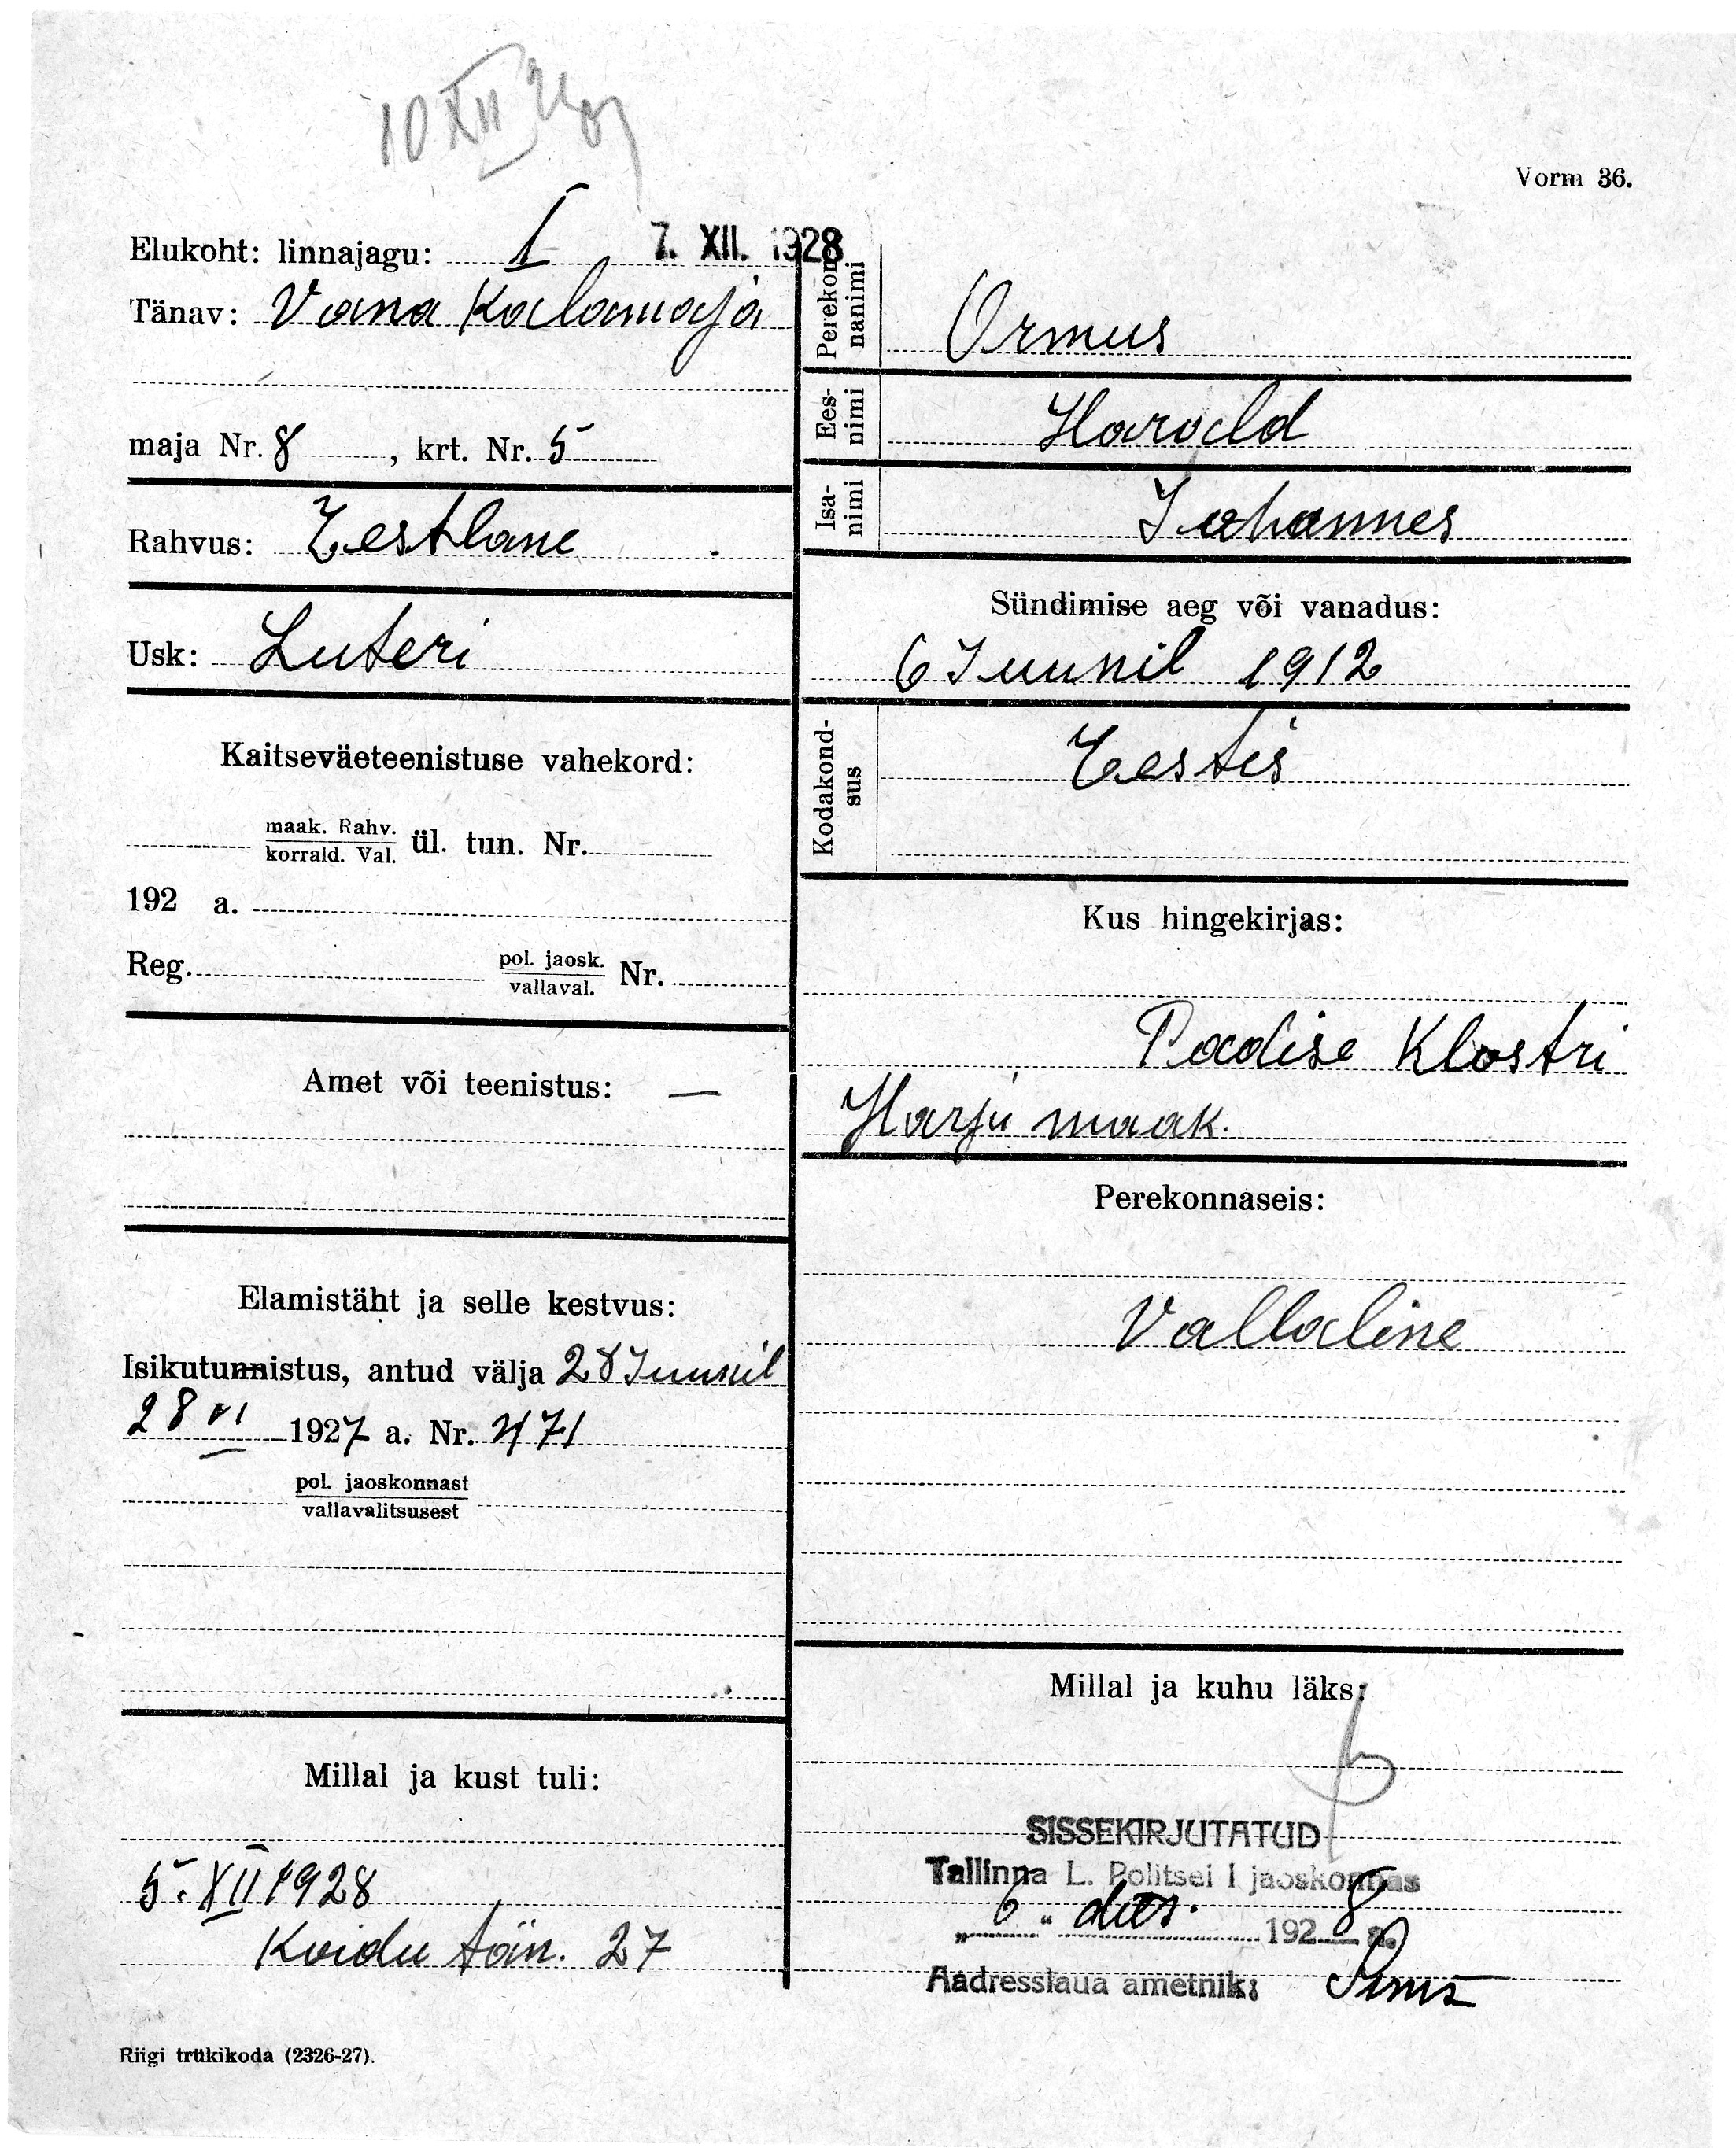 10 XII
Vorm 36.
Elukoht: linnajagu: I 7. XII. 1928
Tänav: Vana Kalamaja
maja Nr. 8, krt. Nr. 5
Rahvus: Eestlane
Usk: Luteri
Kaitseväeteenistuse vahekord:
maak. Rahv.
korrald. Val. ül. tun. Nr.
192 a.
Reg. pol. jaosk.
vallaval. Nr.
Amet või teenistus: —
Elamistäht ja selle kestvus:
Isikutunnistus, antud välja 28 Juunil
28 VI 1927 a. Nr. 471
pol. jaoskonnast
vallavalitsusest
Millal ja kust tuli:
5. XII 1928
Koidu tän. 27
Riigi trükikoda (2326-27).
Perekon
nanimi
Ormus
Ees-
nimi
Harald
Isa-
nimi
Juhannes
Sündimise aeg või vanadus:
6 Juunil 1912
Kodakond-
sus
Eestis
Kus hingekirjas:
Padise Klostri
Harju maak.
Perekonnaseis:
Vallaline
Millal ja kuhu läks:
SISSEKIRJUTATUD
Tallinna L. Politsei I jaoskonnas
„6." dets. 1928 a.
Aadresslaua ametnik: